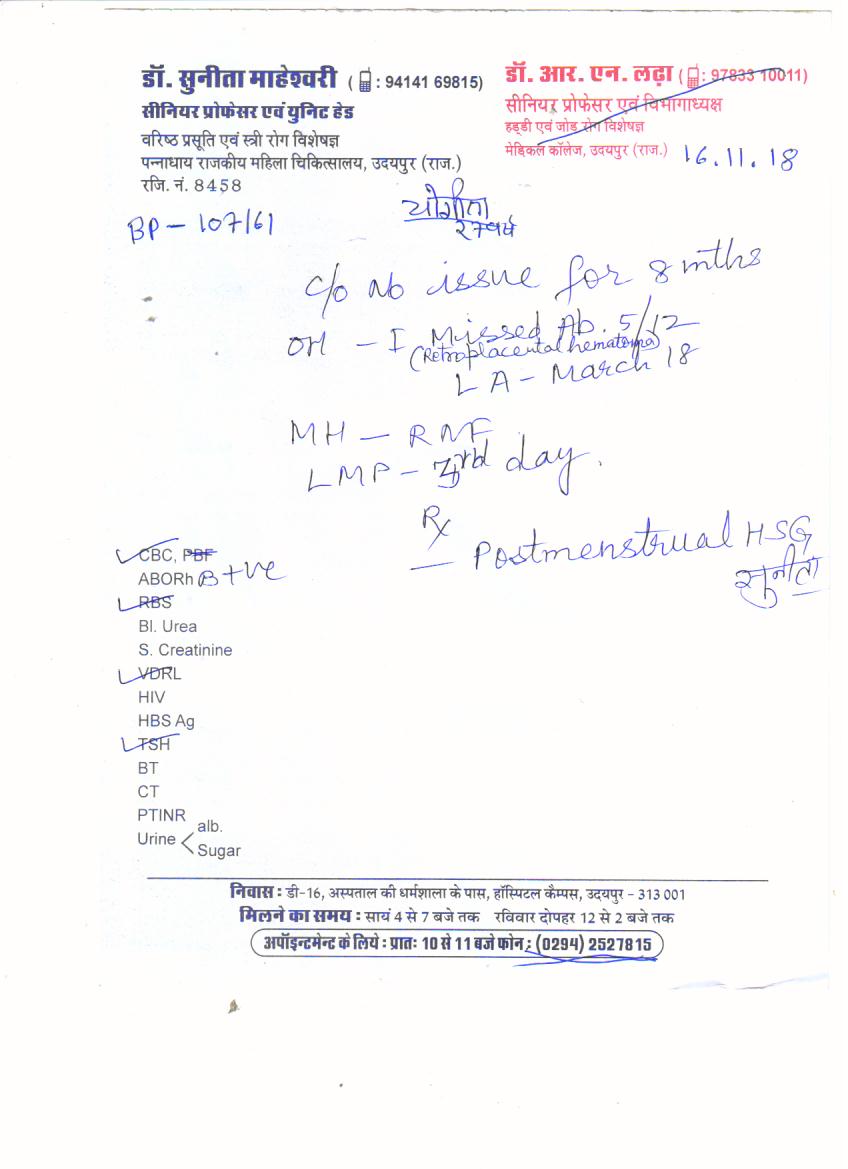 डॉ. सुनीता माहेश्वरी ( : 94141 69815)
सीनियर प्रोफेसर एवं युनिट हेड
वरिष्ठ प्रसूति एवं स्त्री रोग विशेषज्ञ
पन्नाधाय राजकीय महिला चिकित्सालय, उदयपुर (राज.)
रजि. नं. 8458
डॉ. आर. एन. लढ़ा ( : 97833 10011)
सीनियर प्रोफेसर एवं विभागाध्यक्ष
हड्डी एवं जोड़ रोग विशेषज्ञ
मेडिकल कॉलेज, उदयपुर (राज.)
16.11.18
BP - 107/61
योगीता
२७वर्ष
c/o No issue for 8 mths
OH - I Missed Ab. 5/12
(Retroplacental hematoma)
L A - March 18
MH - RNF
LMP - 3rd day.
Rx
- Postmenstrual HSG
सुनीता
CBC, PBF
ABORh B+ve
RBS
Bl. Urea
S. Creatinine
VDRL
HIV
HBS Ag
TSH
BT
CT
PTINR
Urine < alb.
Sugar
निवास : डी-16, अस्पताल की धर्मशाला के पास, हॉस्पिटल कैम्पस, उदयपुर - 313 001
मिलने का समय : सायं 4 से 7 बजे तक रविवार दोपहर 12 से 2 बजे तक
अपॉइन्टमेन्ट के लिये : प्रातः 10 से 11 बजे फोन : (0294) 2527815